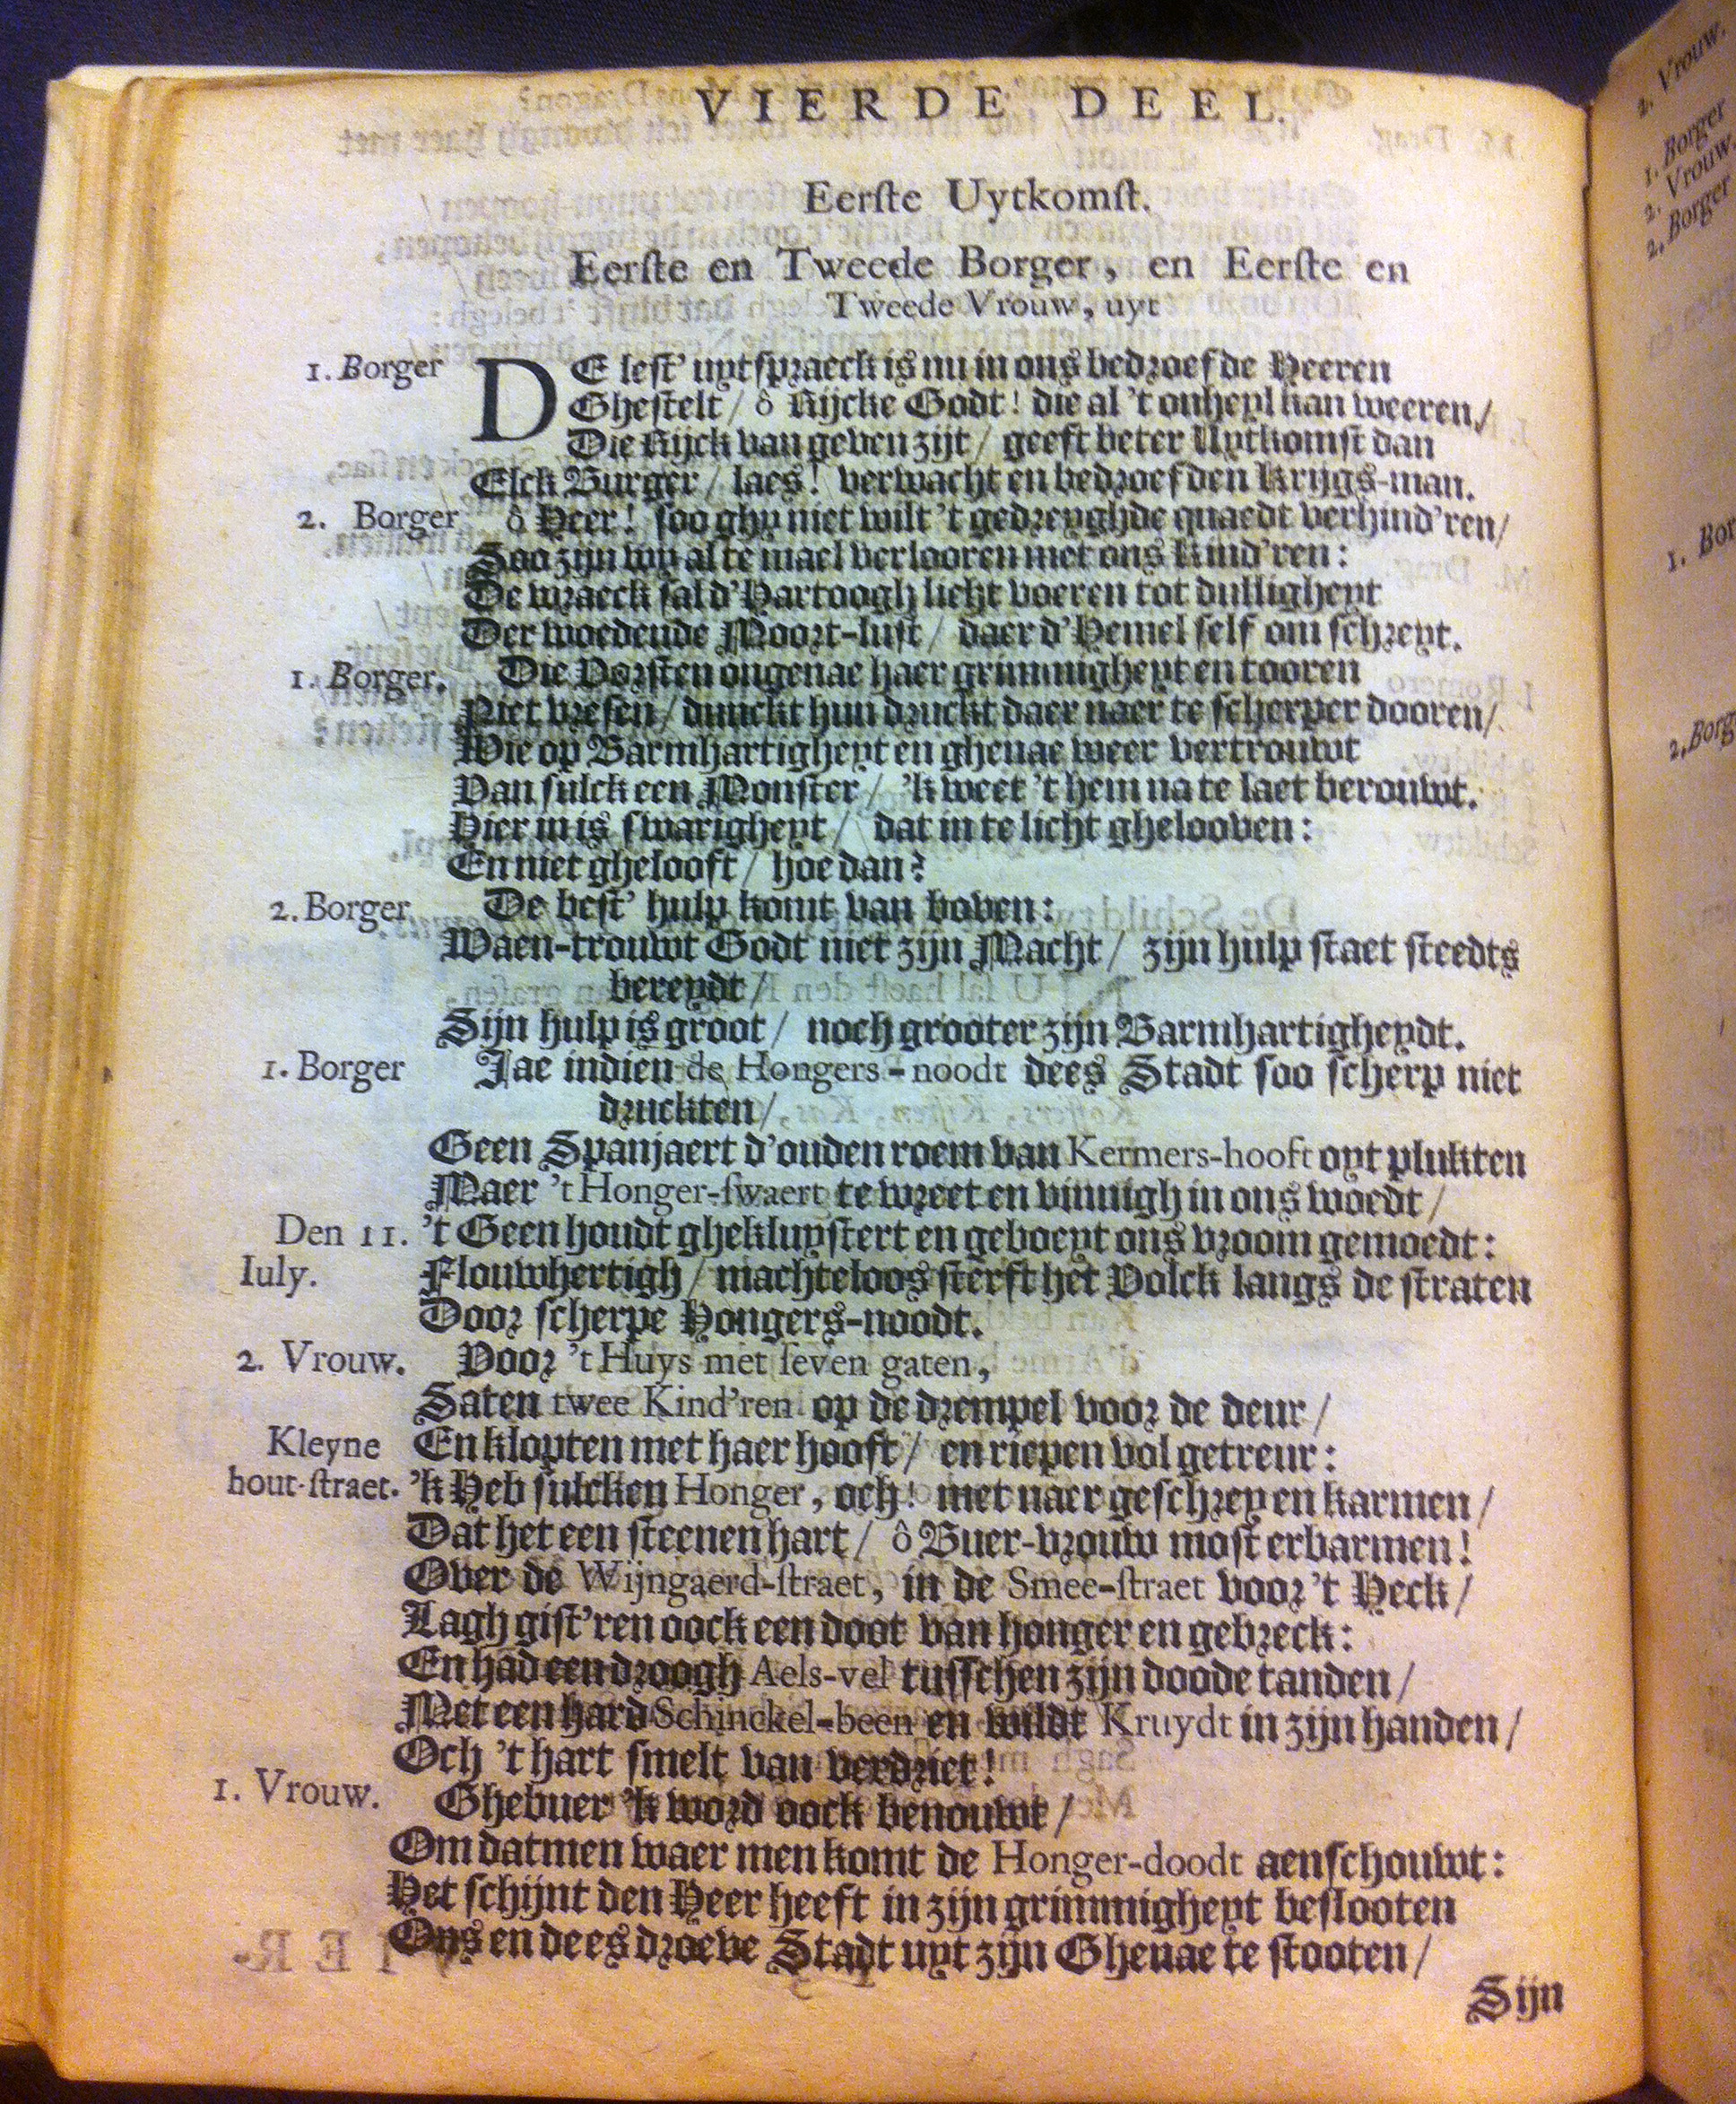 VIERDE DEEL.
Eerſte Uytkomſt.
Eerſte en Tweede Borger, en Eerſte en
Tweede Vrouw, uyt
1. Borger DE leſt' uytſpraeck is nu in ons bedroefde Heeren
Gheſtelt / ô Rijcke Godt! die al 't onheyl kan weeren /
Die Rijck van geven zijt / geeft beter Uytkomſt dan
Elck Burger / laes! verwacht en bedroefden Krijgs-man.
2. Borger ô Heer! ſoo ghy niet wilt 't gedreyghde quaedt verhind'ren /
Soo zijn wy al te mael verlooren met ons Kind'ren:
De wraeck ſal d'Hartoogh licht voeren tot dulligheyt
Der woedende Moort-luſt / daer d'Hemel ſelf om ſchreyt.
1. Borger. Die Vorſten ongenae haer grimmigheyt en tooren
Niet vreſen / dunckt hun druckt daer naer te ſcherper dooren /
Wie op Barmhartigheyt en ghenae weer vertrouwt
Van ſulck een Monſter / 'k weet 't hem na te laet berouwt.
Hier in is ſwarigheyt / dat in te licht ghelooven:
En niet ghelooft / hoe dan?
2. Borger De beſt' hulp komt van boven:
Waen-trouwt Godt niet zijn Macht / zijn hulp ſtaet ſteedts
bereydt /
Sijn hulp is groot / noch grooter zijn Barmhartigheydt.
1. Borger Jae indien de Hongers-noodt dees Stadt ſoo ſcherp niet
druckten /
Geen Spanjaert d'ouden roem van Kermers-hooft oyt plukten
Maer 't Honger-ſwaert te wreet en vinnigh in ons woedt /
Den 11. 't Geen houdt ghekluyſtert en geboeyt ons vroom gemoedt:
Iuly. Flouwhertigh / machteloos ſterft het Volck langs de ſtraten
Door ſcherpe Hongers-noodt.
2. Vrouw. Voor 't Huys met ſeven gaten,
Saten twee Kind'ren op de drempel voor de deur /
Kleyne En klopten met haer hooft / en riepen vol getreur:
hout-ſtraet. 'k Heb ſulcken Honger, och! met naer geſchrey en karmen /
Dat het een ſteenen hart / ô Buer-vrouw moſt erbarmen!
Over de Wijngaerd-ſtraet, in de Smee-ſtraet voor 't Heck /
Lagh giſt'ren oock een doot van honger en gebreck:
En had een droogh Aels-vel tuſſchen zijn doode tanden /
Met een hard Schinckel-been en wildt Kruydt in zijn handen /
Och 't hart ſmelt van verdriet!
1. Vrouw. Ghebuer 'k word oock benouwt /
Om datmen waer men komt de Honger-doodt aenſchouwt:
Het ſchijnt den Heer heeft in zijn grimmigheyt beſlooten
Ons en dees droeve Stadt uyt zijn Ghenae te ſtooten /
Sijn
2. Vrouw.
1. Borger
2. Vrouw.
2. Borger
1. Bor
2. Borg